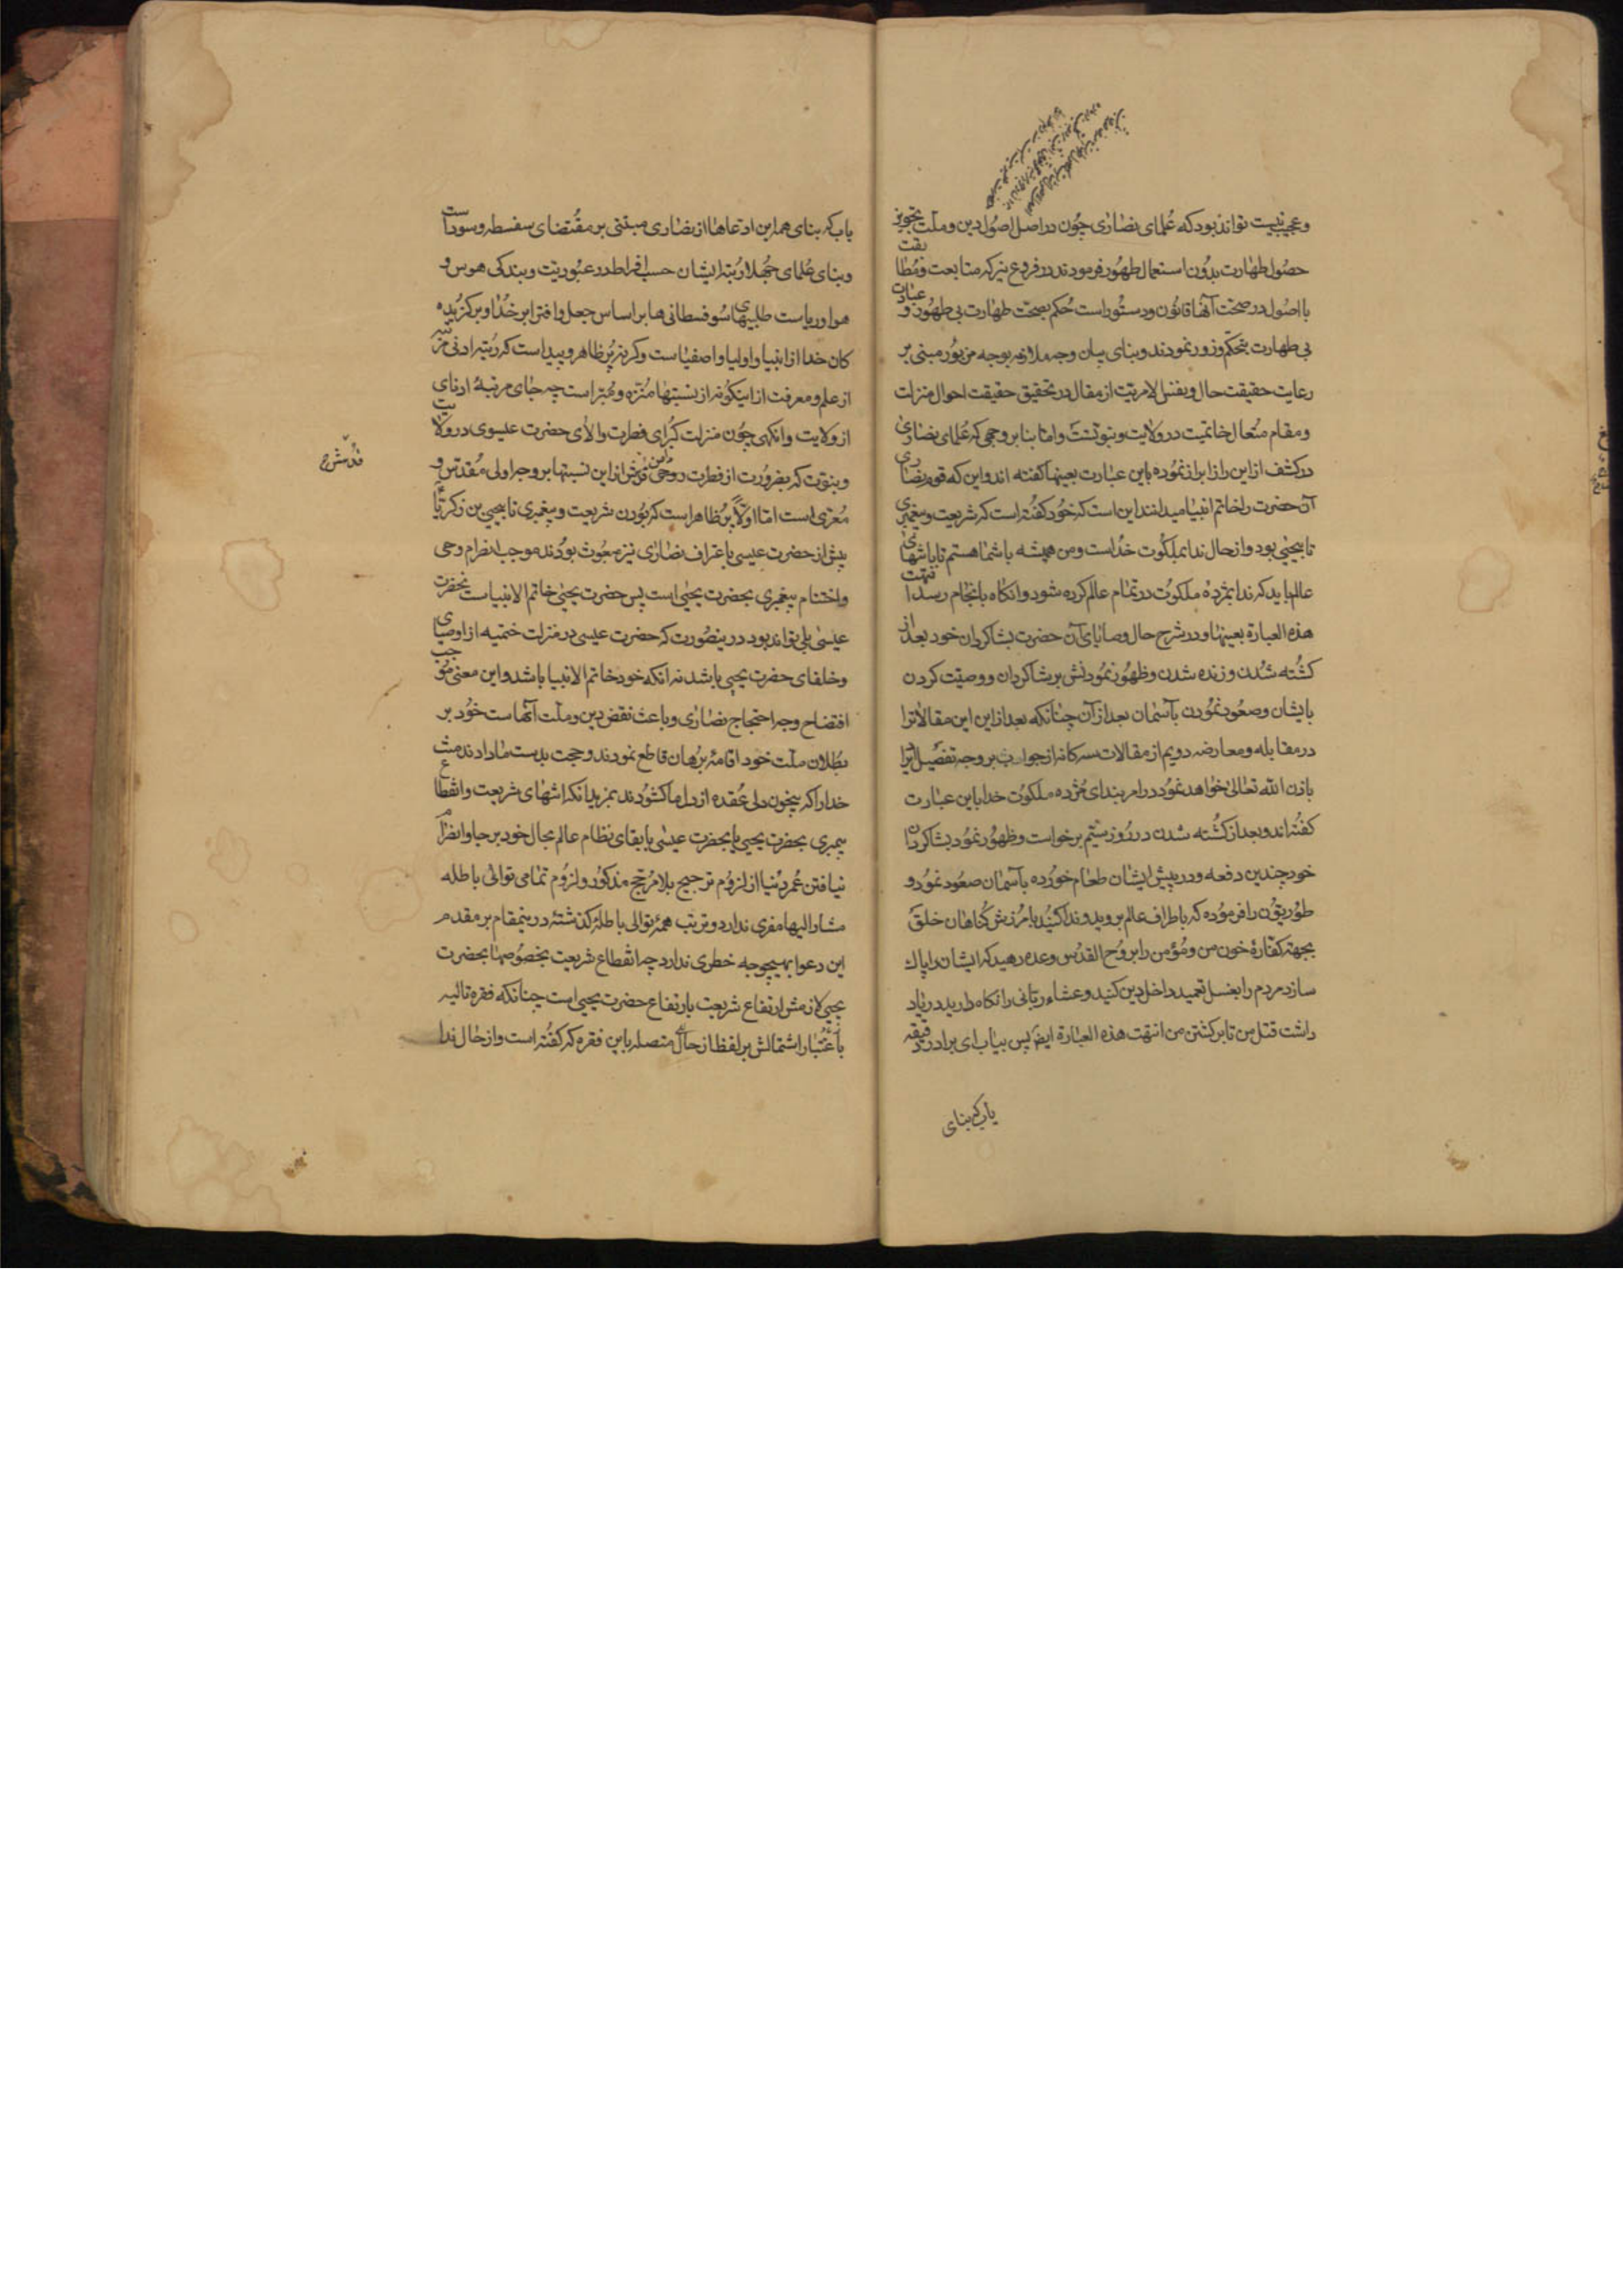 و عجب نیست تواند بود که عُلمای نصاری چون در اصل اصُول دین و ملّت تجویز
حصُول طهارت بدُون استعمال طهُور فرمودند در فروع نیز که متابعت و مُطابقت
با اصُول در صحّت آنها قانُون و دستُور است حُکم بصحّت طهارت بی طهُور و عبادت
بی طهارت بتحکّم و زور نمودند و بنای بیان وجه ملازمه بوجه مزبُور مبنی بر
رعایت حقیقت حال و نفس الامریّت از مقال در تحقیق حقیقت احوال منزلت
و مقام متعال خاتمیّت در ولایت و نبوّتست و امّا بنا بر وجهی که عُلمای نصاری
در کشف از این راز ابراز نمُوده باین عبارت بعینها گفته اند و این که قوم نصاری
آن حضرت را خاتم انبیا میدانند این است که خُود گفُته است که شریعت و پیغمبری
تا بیحیٰی بود و از حال ندا بملکُوت خُداست و من همیشه با شما هستم تا بانتهای
عالم باید که ندا بمژدهٔ ملکوُت در تمام عالم کرده شود و آنگاه بانجام رسد انتهت
هذه العبارة بعینها و در شرح حال و وصایای آن حضرت بشاکردان خود بعد از
کشُته شدُن و زنده شدن و ظهُور نمُودنش بر شاکردان و وصیّت کردن
بایشان و صعُود نمُودن بآسمان بعد از آن چنانکه بعد از این این مقالات را
در مقابله و معارضه دویم از مقالات سه کانه از جواب بر وجه تفصیل ایراد
باذن الله تعالی خواهد نمُود در امر بندای مُژده ملکوُت خدا باین عبارت
کفتُه اند و بعد از کشُته شدن در رُوز سیّم برخواست و ظهُور نمُود بشاکردان
خود چندین دفعه و در پیش ایشان طعام خورُده بآسمان صعُود نمُود و
را فرمُوده که باطراف عالم بروید و ندا کنُید بآمرُزش کُناهان خلق
بجهة کفّارهٔ خون من و مُؤمن را بروُح القدُس وعده دهید که ایشان را پاک
سازد مردم را بغسل تعمید داخل دین کنید و عشاء ربّانی را نکاه دارید در یاد
داشت قتل من تا برکشتن من انتهت هذه العبارة ایضً پس بیاب ای برادر دقیقه
یاب که بنای
یاب که بنای همه این ادّعاها از نصاری مبتنی بر مقُتضای سفسطه و سوداست
و بنای عُلمای جُهلا رُتبه ایشان حسب افراط در عبُوریّت و بندکی هوس و
هوا و ریاست طلبیهای سُوفسطانی ها بر اساس جعل و افترا بر خُدا و برکزیده
کان خدا از انبیا و اولیا و اصفیاست و کرنه پُر ظاهر و پیداست که رُتبه ادنی مرتبه
از علم و معرفت از اینکونه از نسبتها مُنزّه و مُبرّاست چه جای مرتبهٔ ادنای
از ولایت و آنکهی چُون منزلت کبُرای فطرت والای حضرت عیسوی در ولایت
و نبوّت که بضرُورت از فطرت از این نسبتها بر وجه اولی مُقدّس و
مُعرّی است امّا اوّلاً پُر ظاهر است که بُودن شریعت و پیغمبری تا بیحیی بن زکریّا
پیش از حضرت عیسی باعتراف نصاری نیز مبعُوث بوُدند موجب انصرام وحی
و اختتام پیغمبری بحضرت یحیٰی است پس حضرت یحیٰی خاتم الانبیاست نه حضرت
عیسٰی بلی تواند بود در ینصُورت که حضرت عیسی در منزلت ختمیه از اوصیای
و خلفای حضرت یحیی باشد نه آنکه خود خاتم الانبیا باشد و این معنی موجب
افتضاح وجه احتجاج نصاری و باعث نقض دین و ملّت آنهاست خوُد بر
بطُلان ملّت خود اقامهٔ برُهان قاطع نمودند و حجّت بدست ما دادند منّت
خدا را که بیخون دلی عُقده از دل ما کشوُدند بمزید آنکه انتهای شریعت و انقطاع
پیمبری بحضرت یحیی یا بحضرت عیسٰی با بقای نظام عالم بحال خود بر جا و انصرام
نیافتن عُمر دُنیا از لزوُم ترجیح بلا مُرجّح مذکوُر و لزوُم تمامی توالی باطله
مشار الیها مفری ندارد و ترتّب همهٔ توالی باطلهٔ کذشتهٔ در ینمقام بر مقدم
این دعوا بهیچوجه خطری ندارد چه انقطاع شریعت بخصُوصها بحضرت
یحیی لازمش ارتفاع شریعت بارتفاع حضرت یحیی است چنانکه فقره تالیه
باعُتبار اشتمالش بر لفظ از حال متصله باین فقره که کفتُه است و از حال ندا